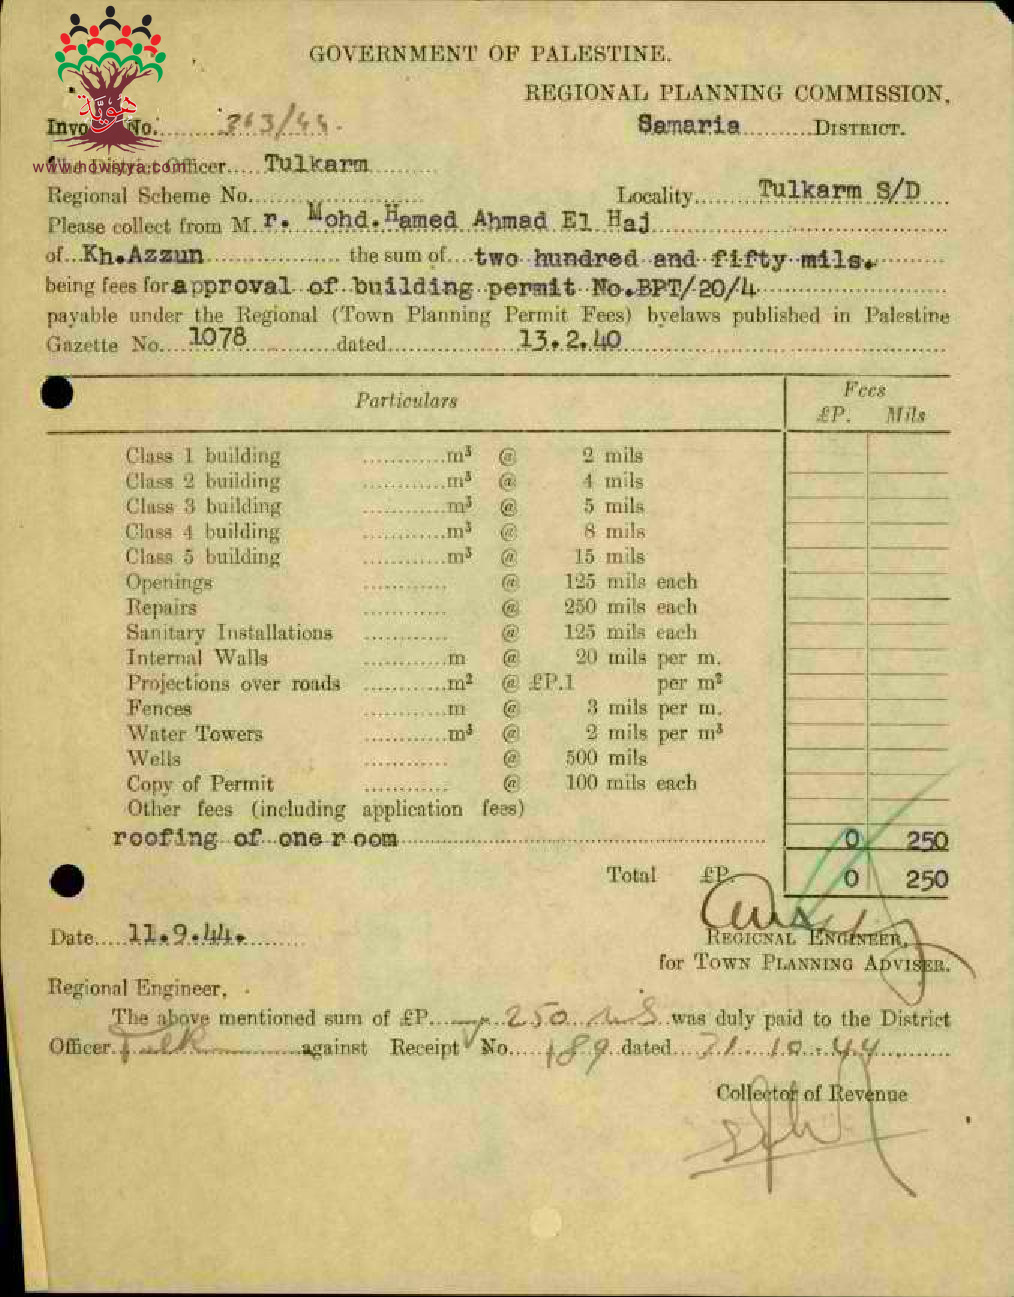 هوية
www.howiyya.com
GOVERNMENT OF PALESTINE.
REGIONAL PLANNING COMMISSION,
Invo No. /44.
Samaria DISTRICT.
The District Officer Tulkarm
Regional Scheme No.
Locality Tulkarm S/D
Please collect from M r. Mohd. Hamed Ahmad El Haj
of Kh.Azzun the sum of two hundred and fifty mils.
being fees for approval of building permit No.BPT/20/4
payable under the Regional (Town Planning Permit Fees) byelaws published in Palestine
Gazette No. 1078 dated 13.2.40
Particulars Fees
£P. Mils
Class 1 building m³ @ 2 mils
Class 2 building m³ @ 4 mils
Class 3 building m³ @ 5 mils
Class 4 building m³ @ 8 mils
Class 5 building m³ @ 15 mils
Openings @ 125 mils each
Repairs @ 250 mils each
Sanitary Installations @ 125 mils each
Internal Walls m @ 20 mils per m.
Projections over roads m² @ £P.1 per m²
Fences m @ 3 mils per m.
Water Towers m³ @ 2 mils per m³
Wells @ 500 mils
Copy of Permit @ 100 mils each
Other fees (including application fees)
roofing of one room 0 250
Total £P. 0 250
Date 11.9.44.
REGIONAL ENGINEER,
for TOWN PLANNING ADVISER.
Regional Engineer,
The above mentioned sum of £P. 250 mls was duly paid to the District
Officer Tulk against Receipt No. 189 dated 71.10.44
Collector of Revenue